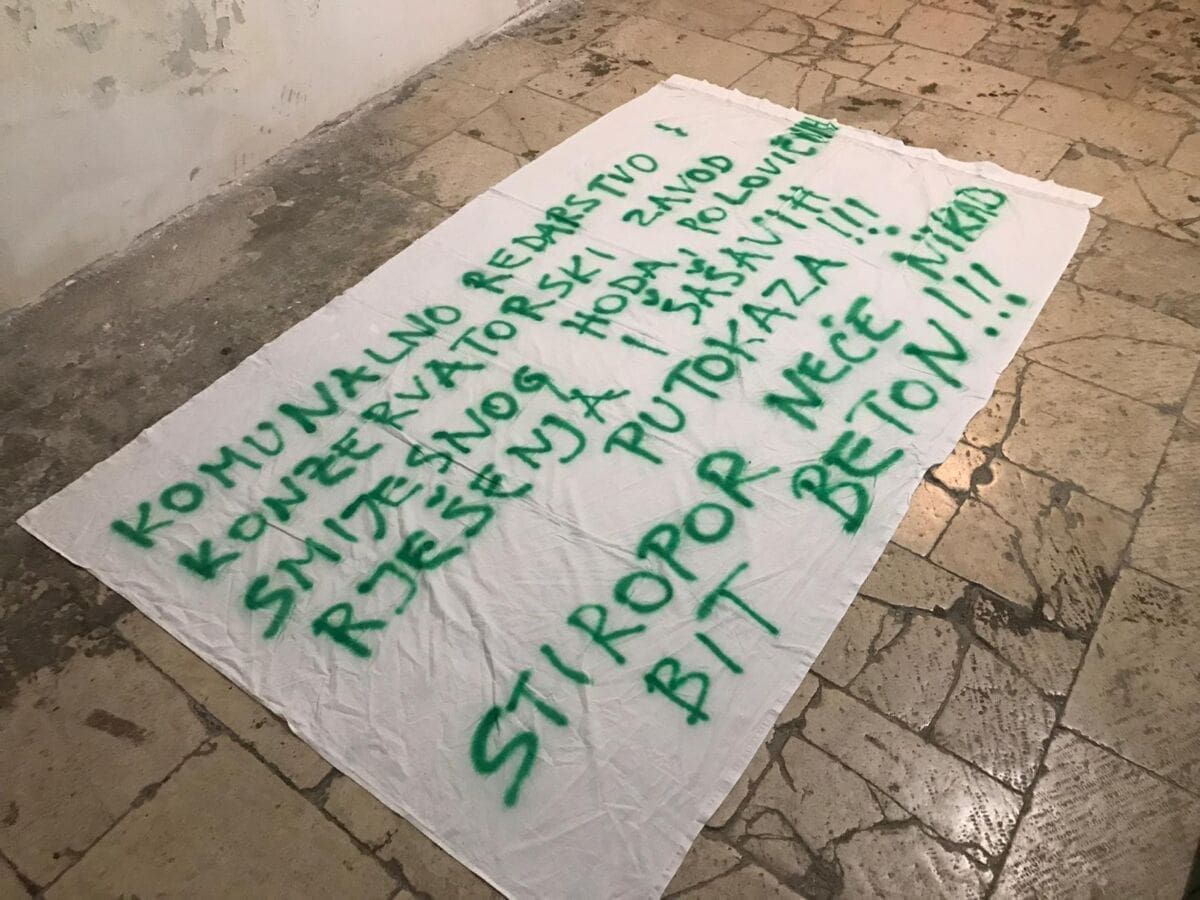 KOMUNALNO REDARSTVO I
KONZERVATORSKI ZAVOD
SMIJEŠNOG HODA POLOVIČNIH
RJEŠENJA I ŠAŠAVIH
PUTOKAZA !!!
STIROPOR NEĆE NIKAD
BIT BETON!!!